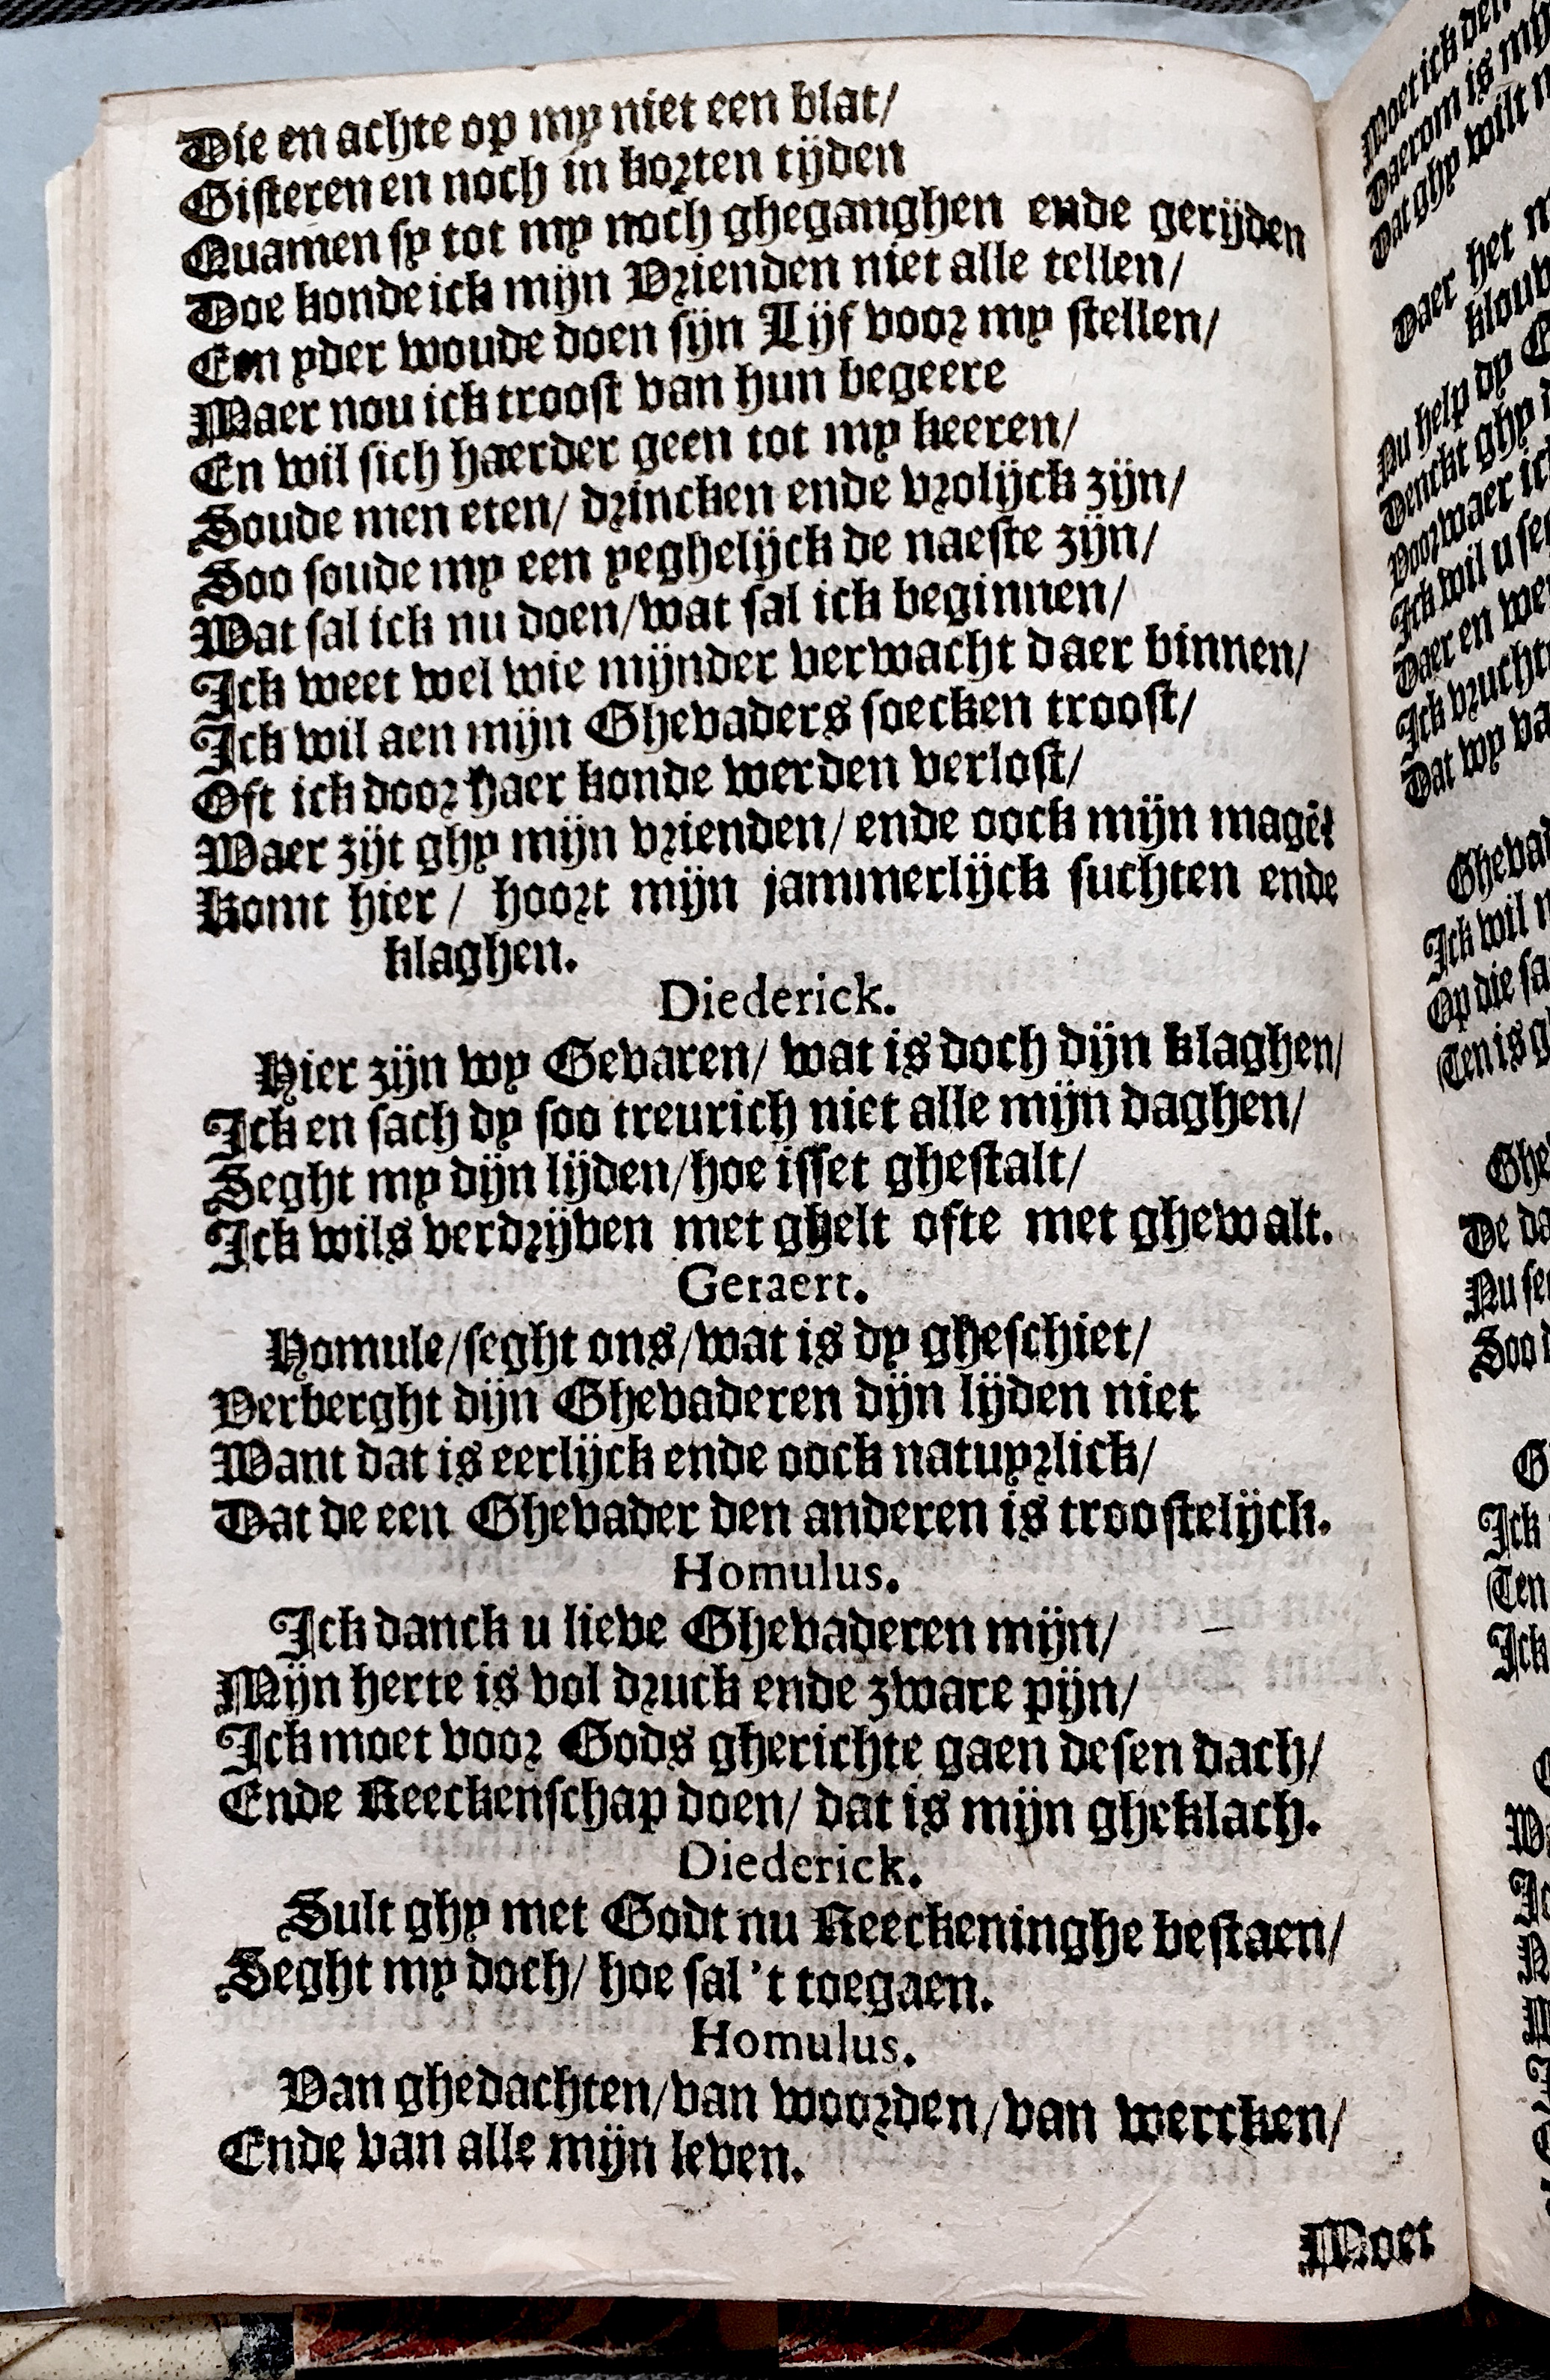 Die en achte op my niet een blat/
Gisteren en noch in korten tijden
Quamen sy tot my noch gheganghen ende gerijden
Doe konde ick mijn Vrienden niet alle tellen/
Een yder woude doen sijn Lijf voor my stellen/
Maer nou ick troost van hun begeere
En wil sich haerder geen tot my keeren/
Soude men eten/ drincken ende vrolijck zijn/
Soo soude my een yeghelijck de naeste zijn/
Wat sal ick nu doen/wat sal ick beginnen/
Ick weet wel wie mijnder verwacht daer binnen/
Ick wil aen mijn Ghevaders soecken troost/
Oft ick door haer konde werden verlost/
Waer zijt ghy mijn vrienden/ ende oock mijn magẽ?
Komt hier/ hoort mijn jammerlijck suchten ende
klaghen.
Diederick.
Hier zijn wy Gevaren/ wat is doch dijn klaghen/
Ick en sach dy soo treurich niet alle mijn daghen/
Seght my dijn lijden/hoe isset ghestalt/
Ick wils verdrijven met ghelt ofte met ghewalt.
Geraert.
Homule/seght ons/wat is dy gheschiet/
Verberght dijn Ghevaderen dijn lijden niet
Want dat is eerlijck ende oock natuyrlick/
Dat de een Ghevader den anderen is troostelijck.
Homulus.
Ick danck u lieve Ghevaderen mijn/
Mijn herte is vol druck ende zware pijn/
Ick moet voor Gods gherichte gaen desen dach/
Ende Reeckenschap doen/ dat is mijn gheklach.
Diederick.
Sult ghy met Godt nu Reeckeninghe bestaen/
Seght my doch/ hoe sal 't toegaen.
Homulus.
Van ghedachten/van woorden/van wercken/
Ende van alle mijn leven.
Moet
Moet ick
Daerom is
Dat ghy wilt
Daer het
Nu help dy
Denckt ghy
Voorwaer
Ick wil u
Daer en
Ick
Dat wy
Ick wil
Op die
Ten is
De
Nu
Soo
Ick
Ten
Ick